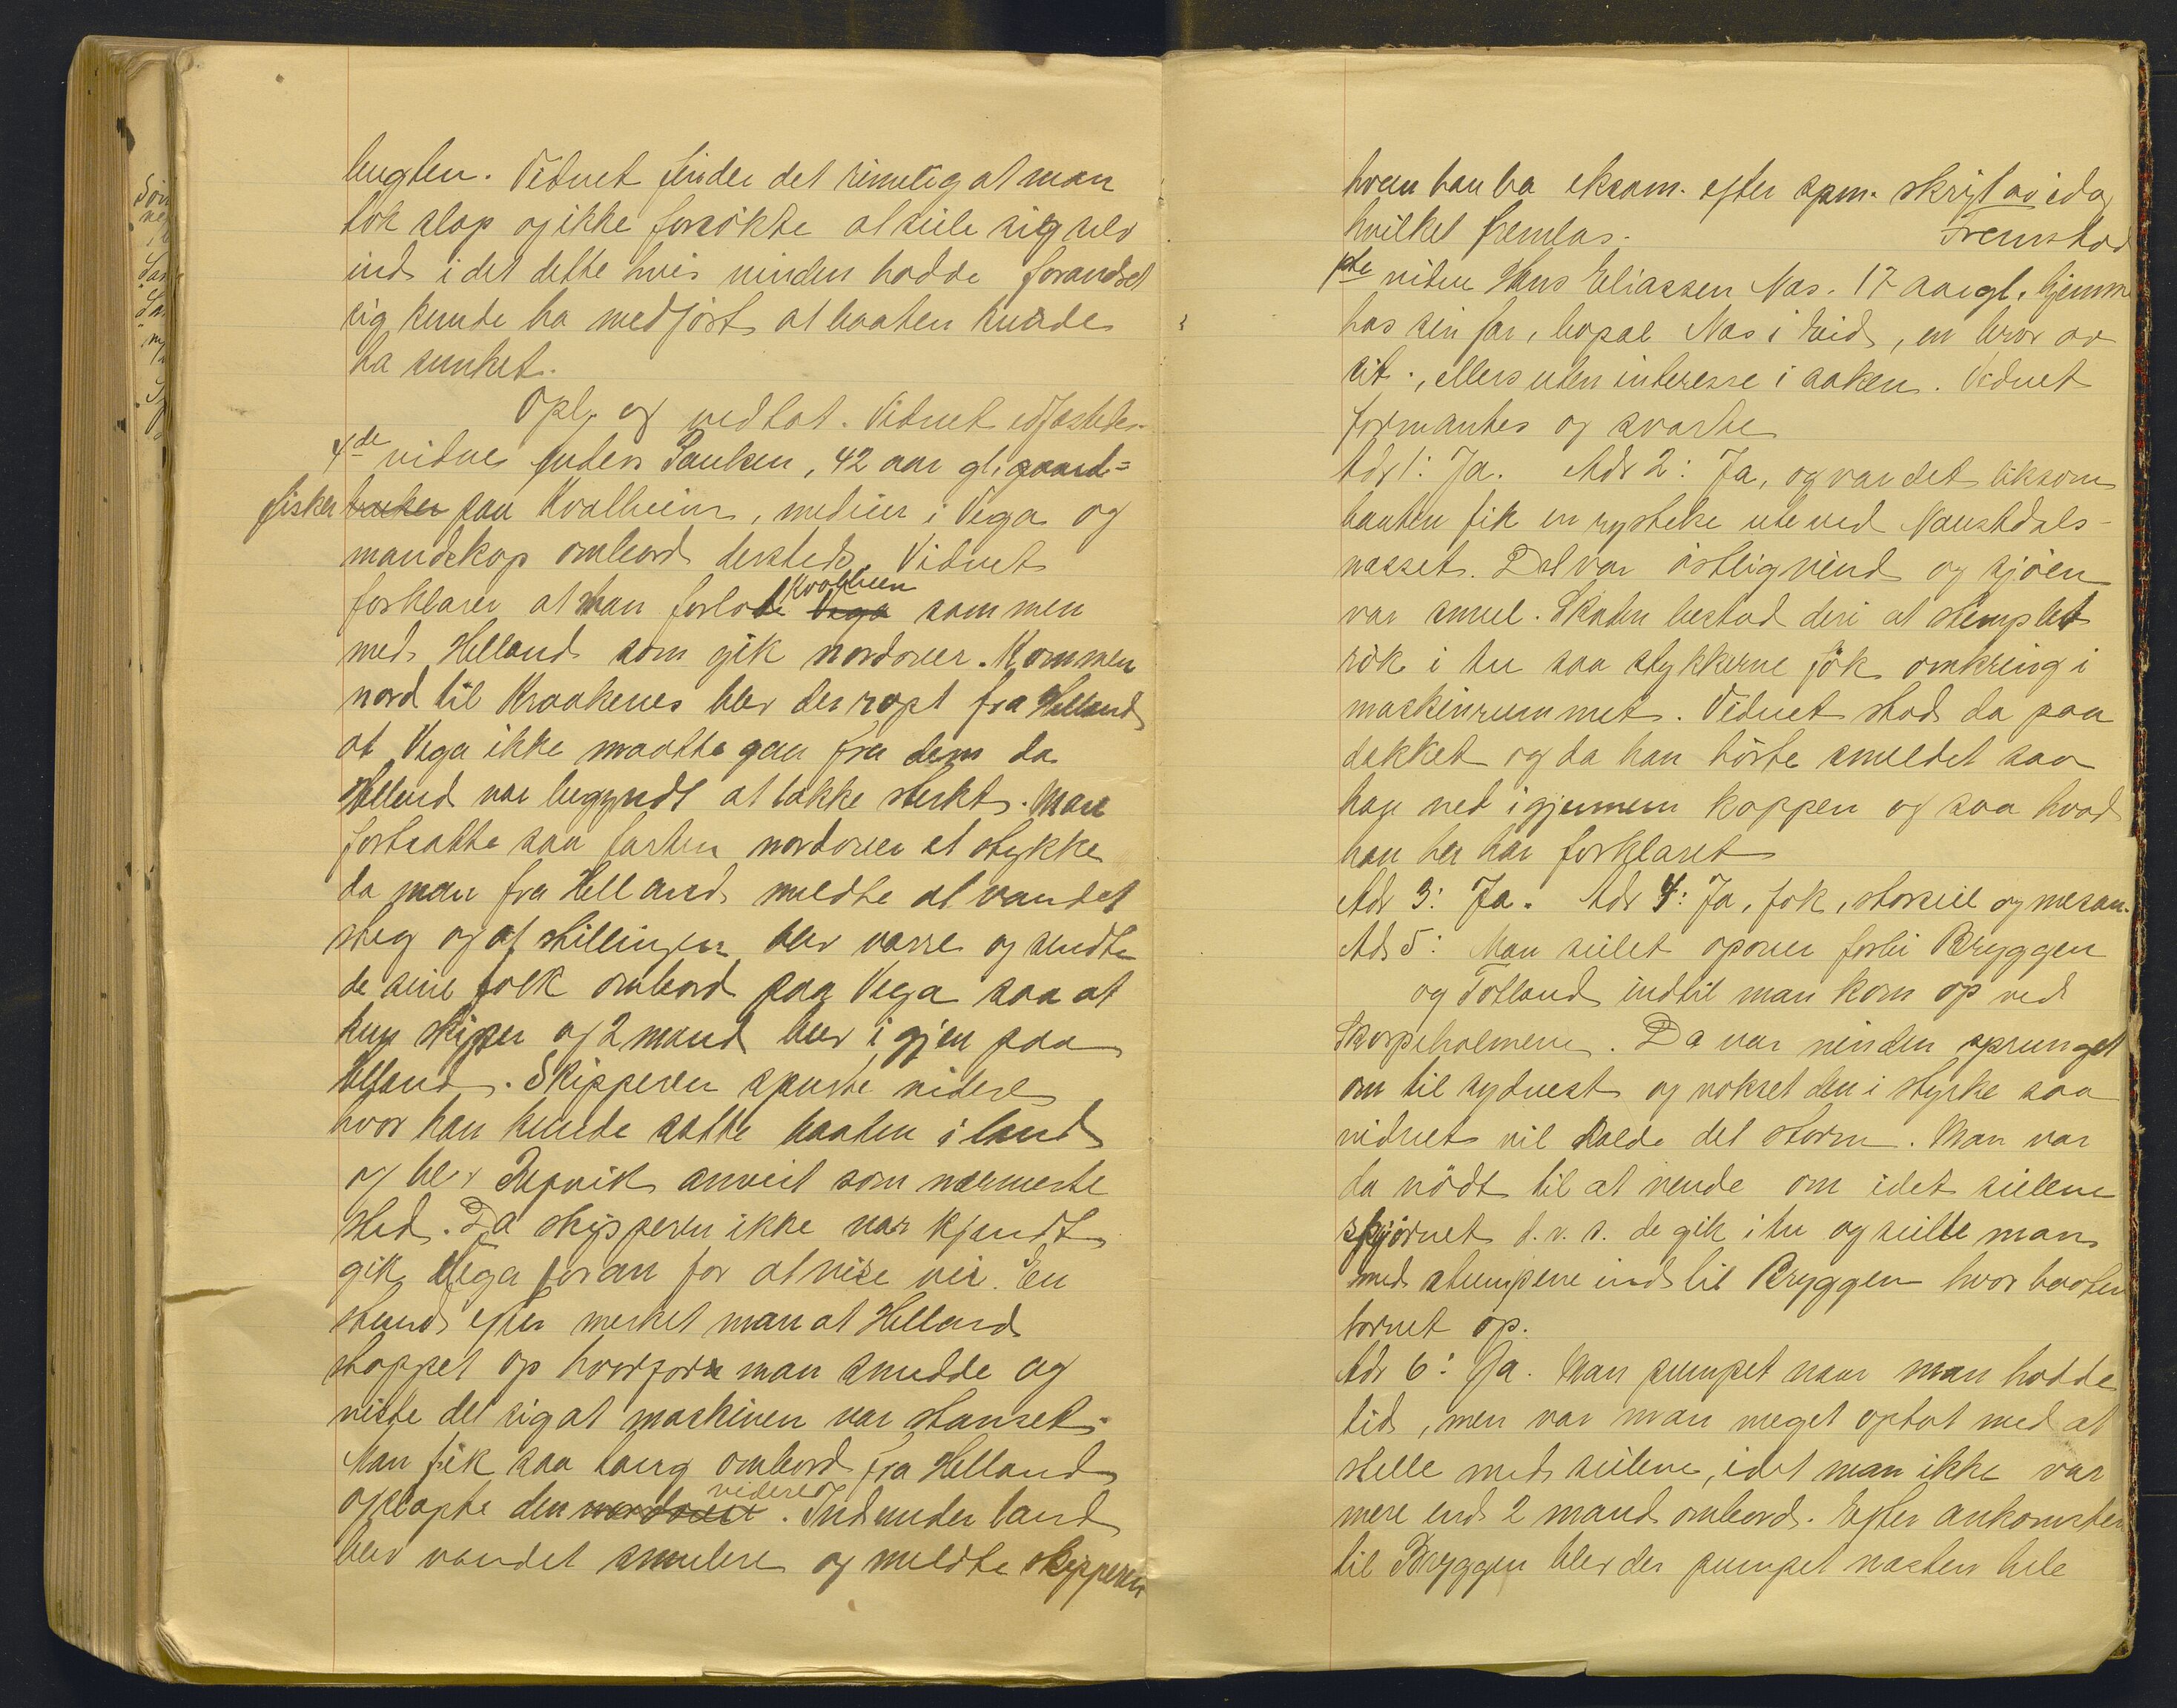 lengten. Vidnet finder det rimelig at man
tok slæp og ikke forsøkte at seile sig selv
ind i det dette hvis vinden hadde forandret
sig kunde ha medført at baaten kunde
ha sunket.
Opl. og vedtat. Vidnet edfæstedes.
4de vidne Anders Paulsen, 42 aar gl, gaard=
fisker bruker paa Kvalheim, medeier i Vega og
mandskap ombord dersteds. Vidnet
Kvalheim
forklarer at man forlode Vega sammen
med Helland som gik nordover. Kommen
nord til Kraakenes blev der ropt fra Helland
at Vega ikke maatte gaa fra dem da
Helland var begyndt at lække sterkt. Man
fortsatte saa farten nordover et stykke
da man fra Helland meldte at vandet
steg og at stillingen blev værre og sendte
de sine folk ombord paa Vega saa at
kun skiper og 2 mand blev igjen paa
Helland. Skipperen spurte videre
hvor han kunde sætte baaten i land
og blev Refvik anvist som nærmeste
sted. Da skipperen ikke var kjendt
gik Vega foran for at vise vei. En
stund efter merket man at Helland
stoppet op hvorfor man snudde og
viste det sig at maskinen var stanset.
Man fik saa taug ombord fra Helland
videre
og slæpte den nordover. Ind under land
blev vandet smulere og meldte skipperen
hvem han ba eksam. efter spm. skrift av idag
hvilket fremlas. Fremstod
1ste vidne Hans Eliassen Nas. 17 aar gl. hjemme
hos sin far, bopæl Nas i Eid, en bror av
cit., ellers uten interesse i saken. Vidnet
formantes og svarte
Ad 1: Ja. Ad 2: Ja, og var det liksom
baaten fik en rystelse ute ved Naustdals-
nesset. Det var østlig vind og sjøen
var smul. Skaden bestod deri at stemplet
røk i tu saa stykkerne føk omkring i
maskinrummet. Vidnet stod da paa
dækket og da han hørte smeldet saa
han ned igjennem kappen og saa hvad
han her har forklaret
Ad 3: Ja. Ad 4: Ja, fok, storseil og mesan.
Ad 5: Man seilet opover forbi Bryggen
og Totland indtil man kom op ved
Skorpeholmene. Da var vinden sprunget
om til sydvest og vokset den i styrke saa
vidnet vil kalde det storm. Man var
da nødt til at vende om idet seilene
skjørnet d.v.s. de gik i tu og seilte man
med stumpene ind til Bryggen hvor baaten
tornet op.
Ad 6: Ja. Man pumpet naar man hadde
tid, men var man meget optat med at
stelle med seilene, idet man ikke var
mere end 2 mand ombord. Efter ankomsten
til Bryggen blev der pumpet næsten hele